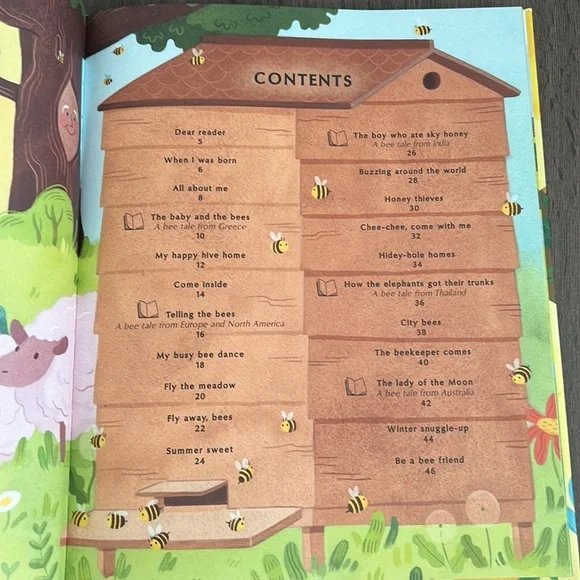 CONTENTS
Dear reader
5
When I was born
6
All about me
8
The baby and the bees
A bee tale from Greece
10
My happy hive home
12
Come inside
14
Telling the bees
A bee tale from Europe and North America
16
My busy bee dance
18
Fly the meadow
20
Fly away, bees
22
Summer sweet
24
The boy who ate sky honey
A bee tale from India
26
Buzzing around the world
28
Honey thieves
30
Chee-chee, come with me
32
Hidey-hole homes
34
How the elephants got their trunks
A bee tale from Thailand
36
City bees
38
The beekeeper comes
40
The lady of the Moon
A bee tale from Australia
42
Winter snuggle-up
44
Be a bee friend
46